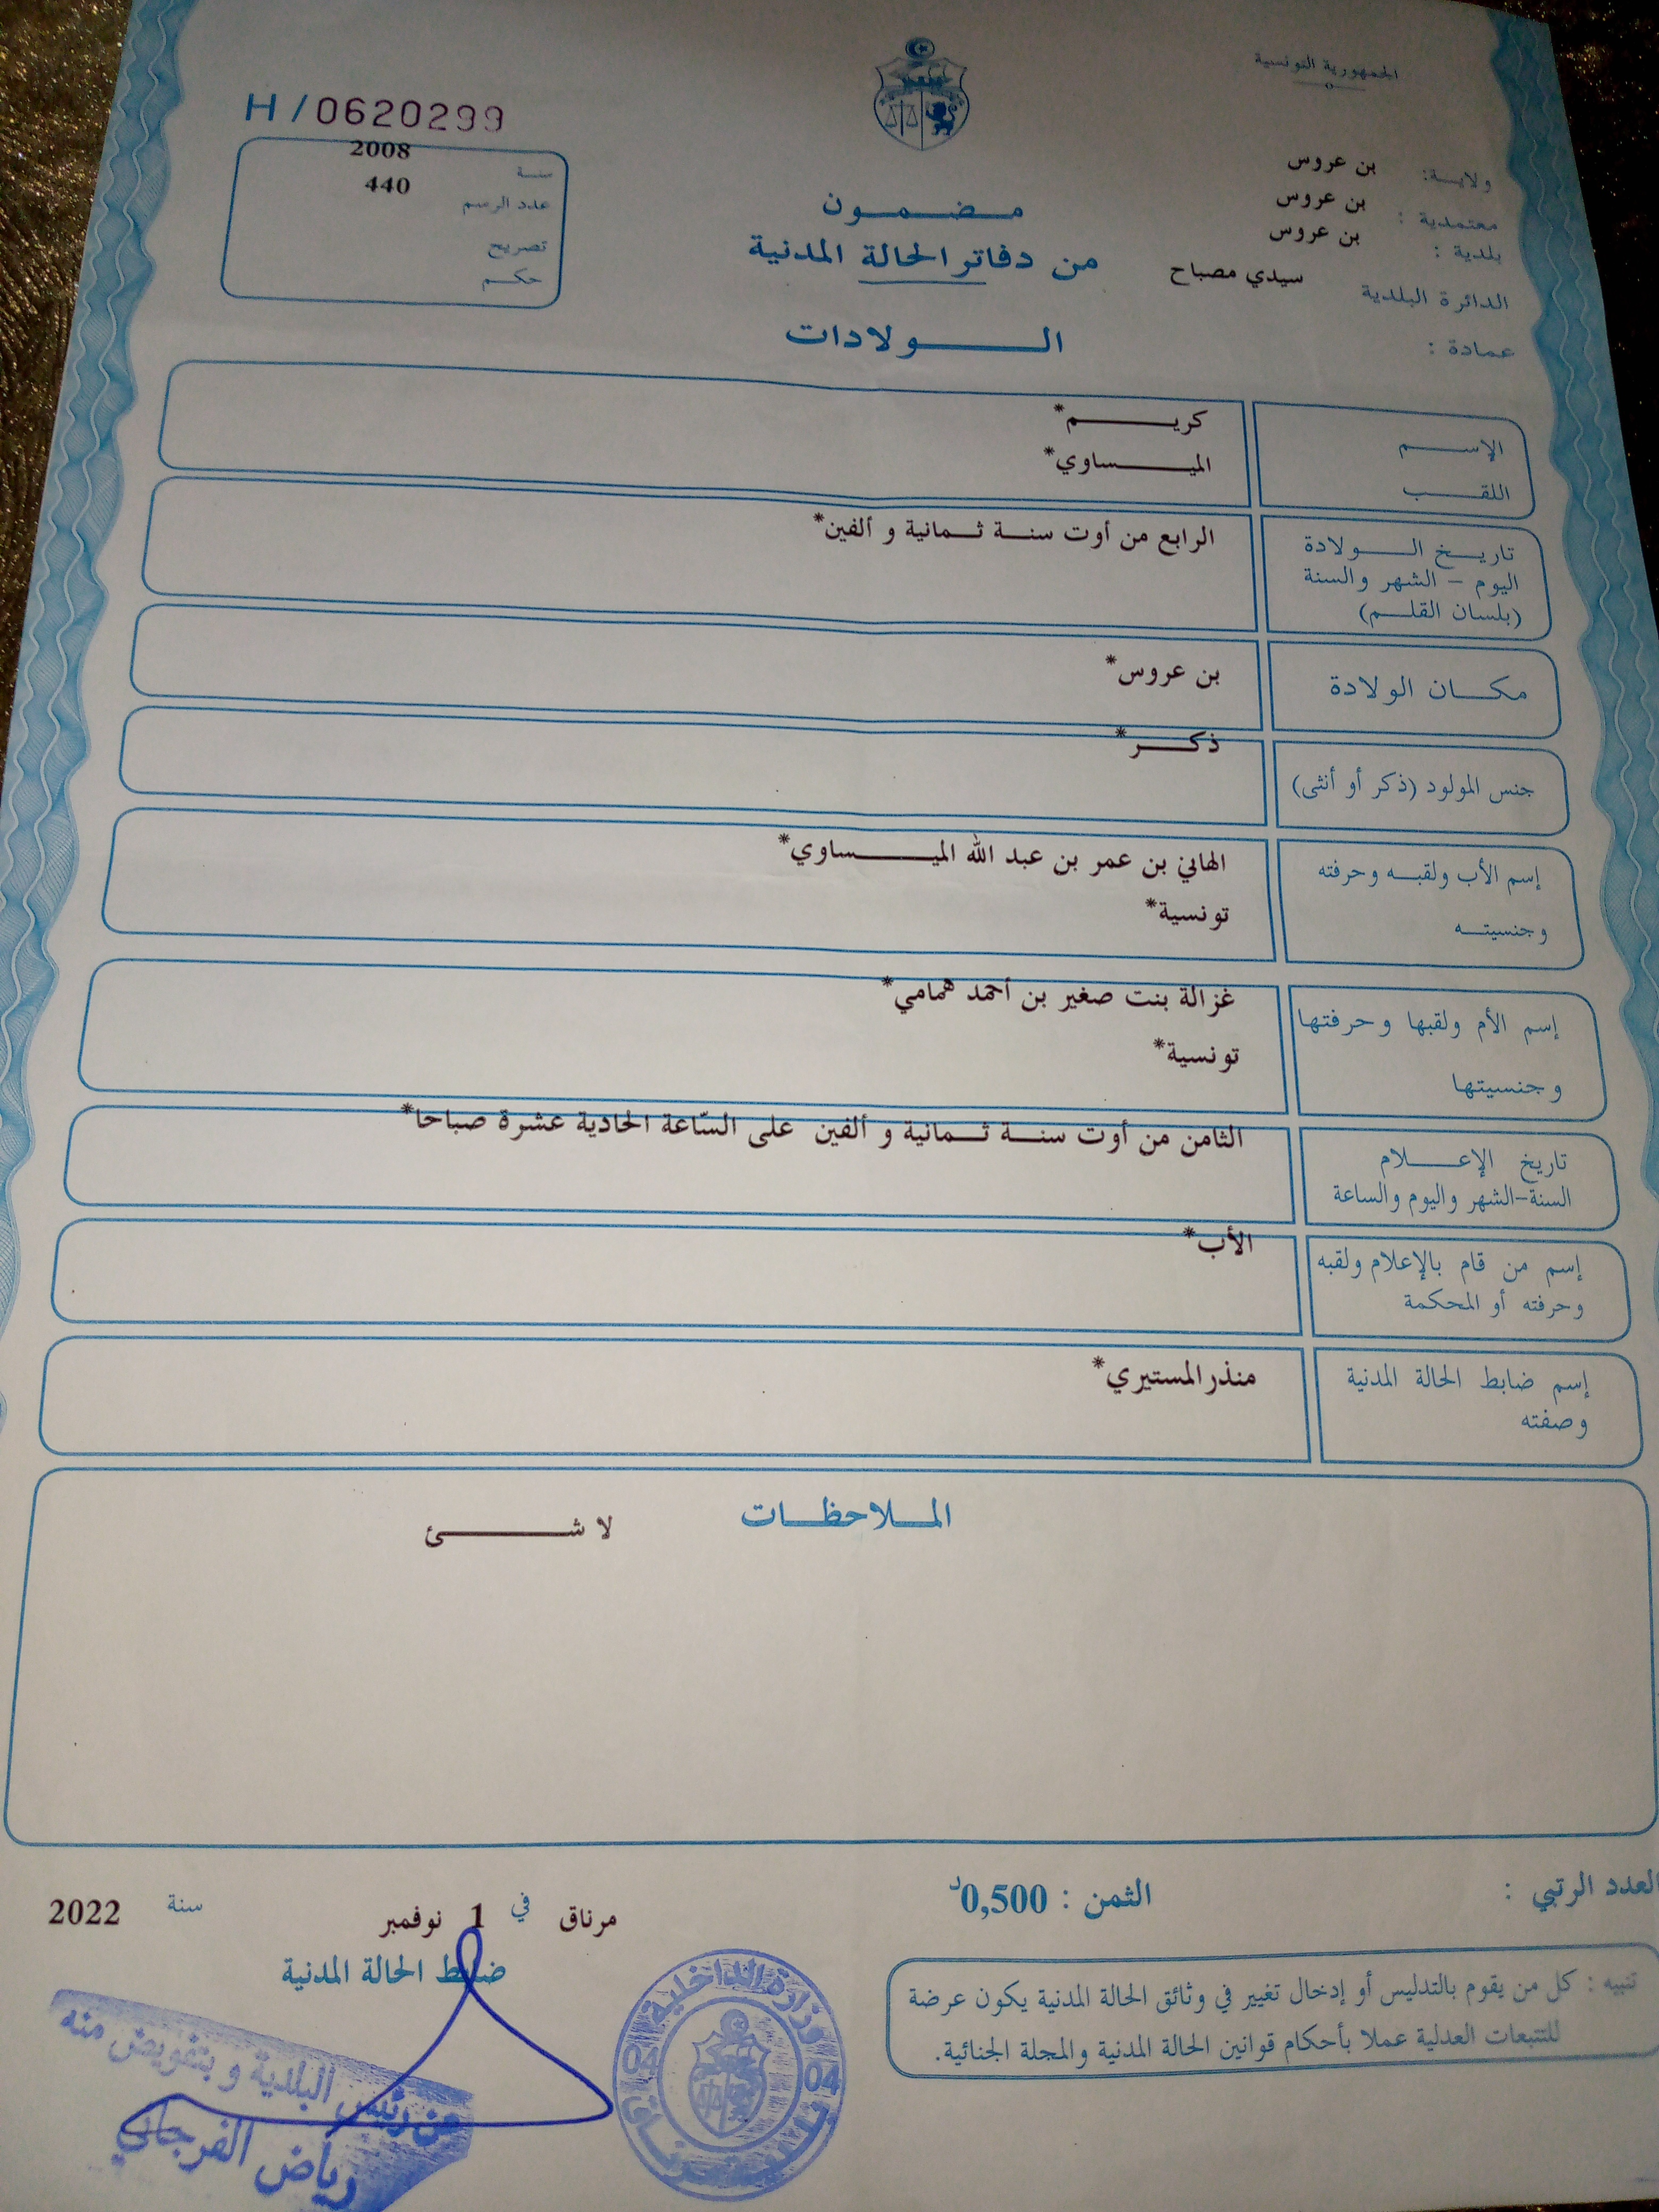 الجمهورية التونسية
H / 0620299
سنة 2008
عدد الرسم 440
تصريح
حكم
ولاية: بن عروس
معتمدية : بن عروس
بلدية : بن عروس
الدائرة البلدية سيدي مصباح
عمادة :
مضمون
من دفاتر الحالة المدنية
الولادات
الإسم كريم*
اللقب الميساوي*
تاريخ الولادة الرابع من أوت سنة ثمانية و ألفين*
اليوم - الشهر والسنة
(بلسان القلم)
مكان الولادة بن عروس*
جنس المولود (ذكر أو أنثى) ذكر*
إسم الأب ولقبه وحرفته الهاني بن عمر بن عبد الله الميساوي*
وجنسيته تونسية*
إسم الأم ولقبها وحرفتها غزالة بنت صغير بن أحمد همامي*
وجنسيتها تونسية*
تاريخ الإعلام الثامن من أوت سنة ثمانية و ألفين على السّاعة الحادية عشرة صباحا*
السنة-الشهر واليوم والساعة
إسم من قام بالإعلام ولقبه الأب*
وحرفته أو المحكمة
إسم ضابط الحالة المدنية منذر المستيري*
وصفته
الملاحظات
لا شئ
العدد الرتبي :
الثمن : 0,500د
مرناق في 1 نوفمبر سنة 2022
ضابط الحالة المدنية
تنبيه : كل من يقوم بالتدليس أو إدخال تغيير في وثائق الحالة المدنية يكون عرضة
للتتبعات العدلية عملا بأحكام قوانين الحالة المدنية والمجلة الجنائية.
وزارة الداخلية
04 04
بلدية مرناق
عن رئيس البلدية و بتفويض منه
رياض الفرجاني